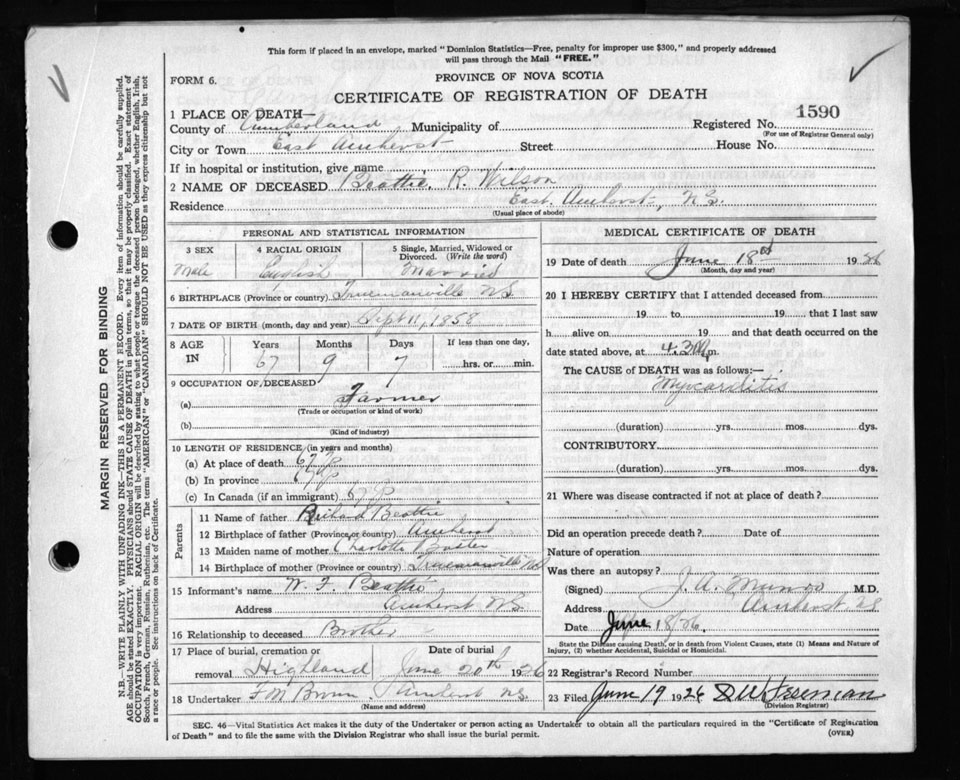 This form if placed in an envelope, marked "Dominion Statistics—Free, penalty for improper use $300," and properly addressed
will pass through the Mail "FREE."
FORM 6.
PROVINCE OF NOVA SCOTIA
CERTIFICATE OF REGISTRATION OF DEATH
1590
1 PLACE OF DEATH—
County of Cumberland Municipality of Registered No.
(For use of Registrar General only)
City or Town East Amherst Street House No.
If in hospital or institution, give name
2 NAME OF DECEASED Beattie. R. Wilson
Residence East. Amherst, N.S.
(Usual place of abode)
PERSONAL AND STATISTICAL INFORMATION
3 SEX 4 RACIAL ORIGIN 5 Single, Married, Widowed or Divorced. (Write the word)
Male English Married
6 BIRTHPLACE (Province or country) Truemanville N.S.
7 DATE OF BIRTH (month, day and year) Sept 11, 1858
8 AGE IN Years Months Days If less than one day,
67 9 7 hrs. or min.
9 OCCUPATION OF DECEASED
(a) Farmer
(Trade or occupation or kind of work)
(b)
(Kind of industry)
10 LENGTH OF RESIDENCE (in years and months)
(a) At place of death 67
(b) In province 67
(c) In Canada (if an immigrant) 67
Parents
11 Name of father Richard Beattie
12 Birthplace of father (Province or country) Amherst
13 Maiden name of mother Charlotte
14 Birthplace of mother (Province or country) Truemanville N.S.
15 Informant's name W. F. Beattie
Address Amherst N.S.
16 Relationship to deceased Brother
17 Place of burial, cremation or removal Highland Date of burial June 20th 1926
18 Undertaker F. M. Brown. Amherst N.S.
(Name and address)
MEDICAL CERTIFICATE OF DEATH
19 Date of death June 18th 1926
(Month, day and year)
20 I HEREBY CERTIFY that I attended deceased from
19 to 19 that I last saw
h alive on 19 and that death occurred on the
date stated above, at 4.30 P.m.
The CAUSE of DEATH was as follows:—
Myocarditis
(duration) yrs. mos. dys.
CONTRIBUTORY.
(duration) yrs. mos. dys.
21 Where was disease contracted if not at place of death?
Did an operation precede death? Date of
Nature of operation
Was there an autopsy?
(Signed) J. A. Munro M.D.
Address Amherst N.S.
Date June 18/26.
State the Disease Causing Death, or in death from Violent Causes, state (1) Means and Nature of
Injury, (2) whether Accidental, Suicidal or Homicidal.
22 Registrar's Record Number
23 Filed June 19 1926
(Division Registrar)
SEC. 46—Vital Statistics Act makes it the duty of the Undertaker or person acting as Undertaker to obtain all the particulars required in the "Certificate of Registration
of Death" and to file the same with the Division Registrar who shall issue the burial permit.
(OVER)
MARGIN RESERVED FOR BINDING
N.B.—WRITE PLAINLY WITH UNFADING INK—THIS IS A PERMANENT RECORD. Every item of information should be carefully supplied.
AGE should be stated EXACTLY. PHYSICIANS should STATE CAUSE OF DEATH in plain terms, so that it may be properly classified. Exact statement of
OCCUPATION is very important. RACIAL ORIGIN will be described by stating to what people or tongue the deceased person belonged, whether English, Irish,
Scotch, French, German, Russian, Ruthenian, etc. The terms "AMERICAN" or "CANADIAN" SHOULD NOT BE USED as they express citizenship but not
a race or people. See instructions on back of Certificate.